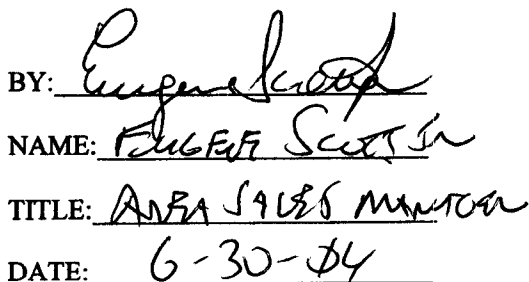 BY: Eugene Scott Jr
NAME: EUGENE SCOTT JR
TITLE: AREA SALES MANAGER
DATE: 6-30-04